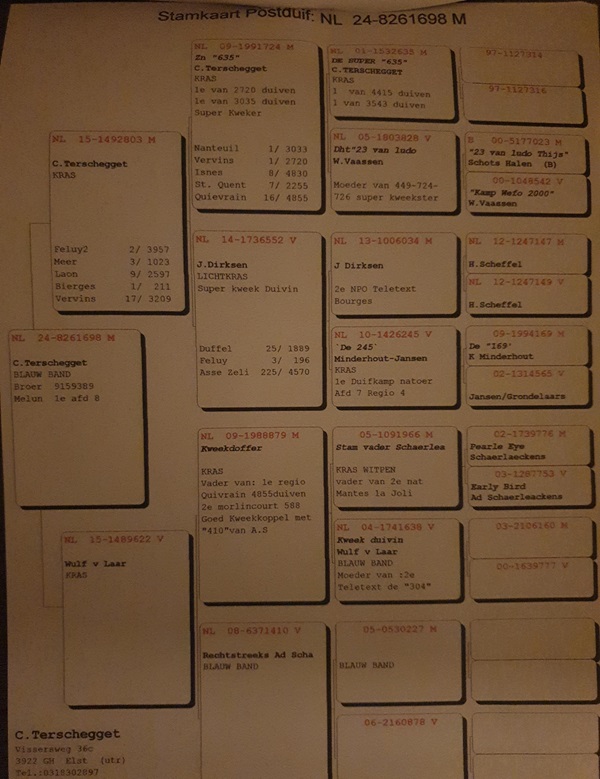 Stamkaart Postduif: NL 24-8261698 M
NL 24-8261698 M
C.Terschegget
BLAUW BAND
Broer 9159389
Melun 1e afd 8
NL 15-1492803 M
C.Terschegget
KRAS
Feluy2 2/ 3957
Meer 3/ 1023
Laon 9/ 2597
Bierges 1/ 211
Vervins 17/ 3209
NL 15-1489622 V
Wulf v Laar
KRAS
NL 09-1991724 M
Zn "635"
C.Terschegget
KRAS
1e van 2720 duiven
1e van 3035 duiven
Super Kweker
Nanteuil 1/ 3033
Vervins 1/ 2720
Isnes 8/ 4830
St. Quent 7/ 2255
Quievrain 16/ 4855
NL 14-1736552 V
J.Dirksen
LICHTKRAS
Super kweek Duivin
Duffel 25/ 1889
Feluy 3/ 196
Asse Zeli 225/ 4570
NL 09-1988879 M
Kweekdoffer
KRAS
Vader van: 1e regio
Quivrain 4855duiven
2e morlincourt 568
Goed Kweekkoppel met
"410"van A.S
NL 08-6371410 V
Rechtstreeks Ad Scha
BLAUW BAND
NL 01-1532635 M
DE SUPER "635"
C.TERSCHEGGET
KRAS
1 van 4415 duiven
1 van 3543 duiven
NL 05-1803828 V
Dht"23 van ludo
W.Vaassen
Moeder van 449-724-
726 super kweekster
NL 13-1006034 M
J Dirksen
2e NPO Teletext
Bourges
NL 10-1426245 V
`De 245`
Minderhout-Jansen
KRAS
1e Duifkamp natoer
Afd 7 Regio 4
05-1091966 M
Stam vader Schaerlea
KRAS WITPEN
vader van 2e nat
Mantes la Joli
NL 04-1741638 V
Kweek duivin
Wulf v Laar
BLAUW BAND
Moeder van :2e
Teletext de "304"
05-0530227 M
BLAUW BAND
06-2160878 V
97-1127314
97-1127316
B 00-5177023 M
"23 van ludo Thijs"
Schots Halen (B)
00-1048542 V
"Kamp Wefo 2000"
W.Vaassen
NL 12-1247147 M
H.Scheffel
NL 12-1247149 V
H.Scheffel
09-1994169 M
De "169'
K Minderhout
02-1314565 V
Jansen/Grondelaars
02-1739776 M
Pearle Eye
Schaerlaeckens
03-1287753 V
Early Bird
Ad Schaerleackens
03-2106160 M
00-1639777 V
C.Terschegget
Visserweg 36c
3922 GH Elst (utr)
Tel.:0318302897